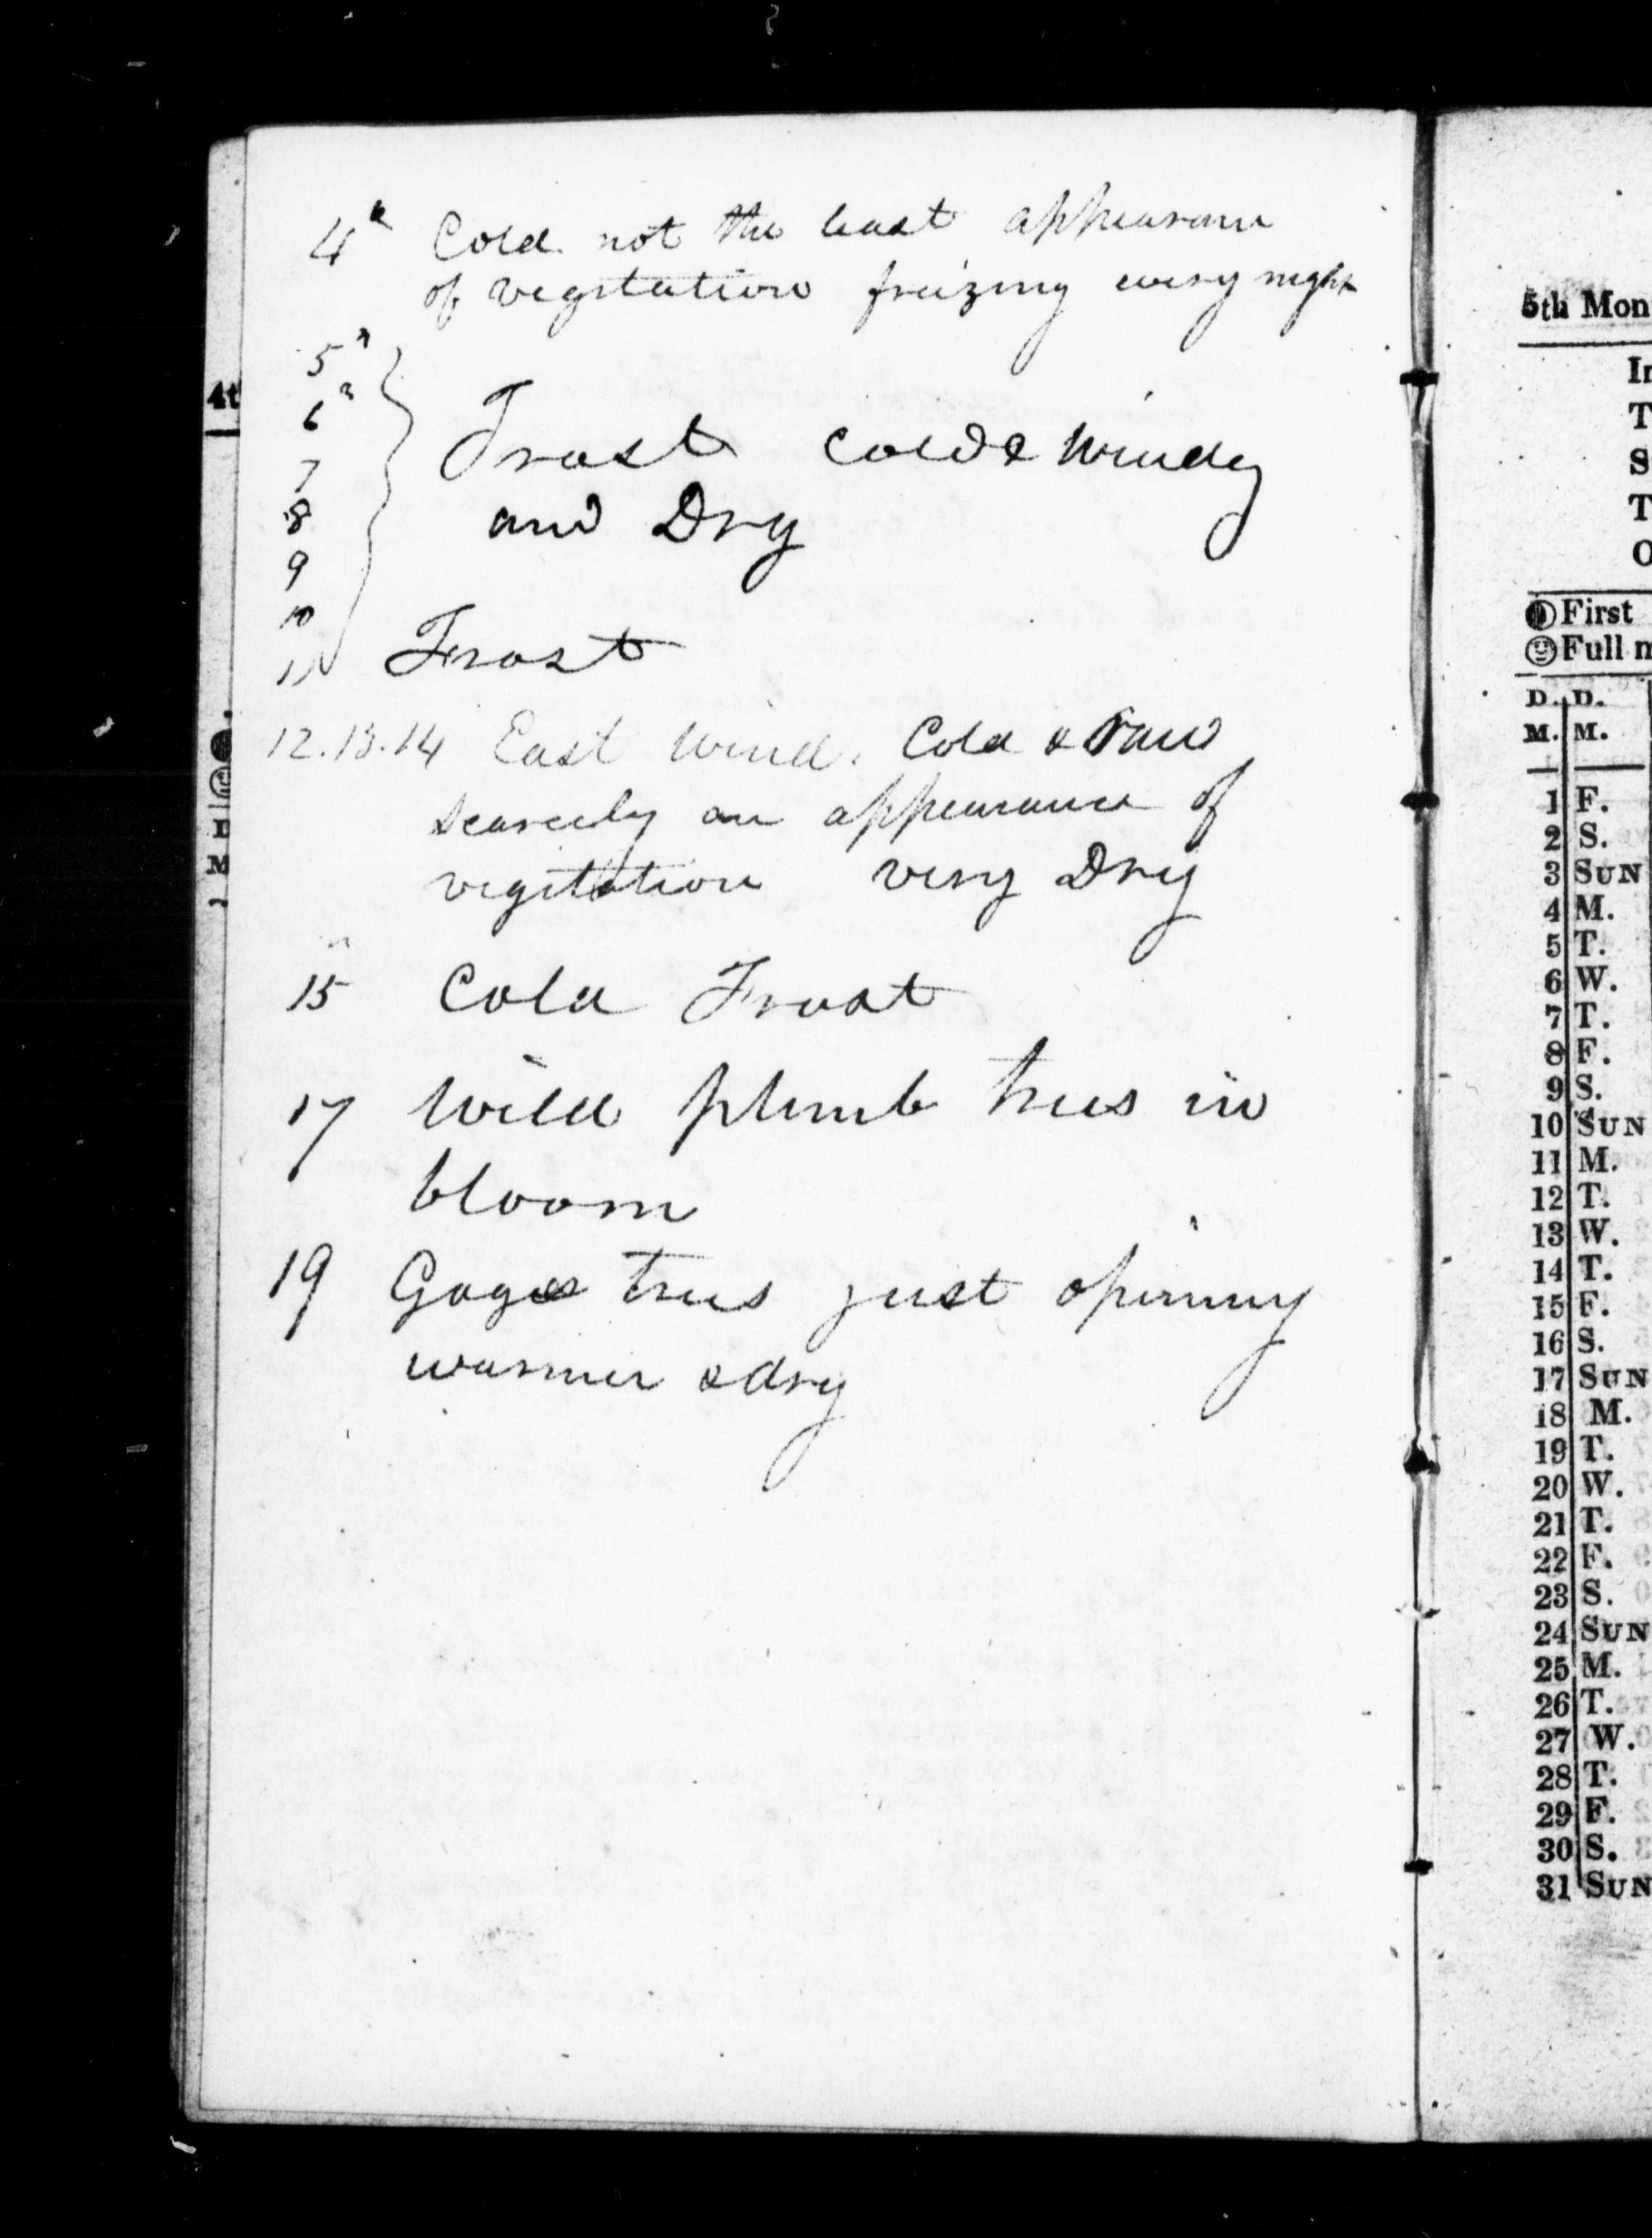 4th Cold not the least appearance
of vegitation freizing every night
5th
6th
7
8
9
10
Frost Cold & Windy
and Dry
11 Frost
12.13.14 East Wind. Cold & raw
scarcely an appearance of
vegitation very Dry
15 Cold Frost
17 Wild plumb trees in
bloom
19 Gages trees just opening
warmer & dry
4t
M
5th Mon
First
Full m
D. D.
M. M.
1 F.
2 S.
3 SUN
4 M.
5 T.
6 W.
7 T.
8 F.
9 S.
10 SUN
11 M.
12 T.
13 W.
14 T.
15 F.
16 S.
17 SUN
18 M.
19 T.
20 W.
21 T.
22 F.
23 S.
24 SUN
25 M.
26 T.
27 W.
28 T.
29 F.
30 S.
31 SUN